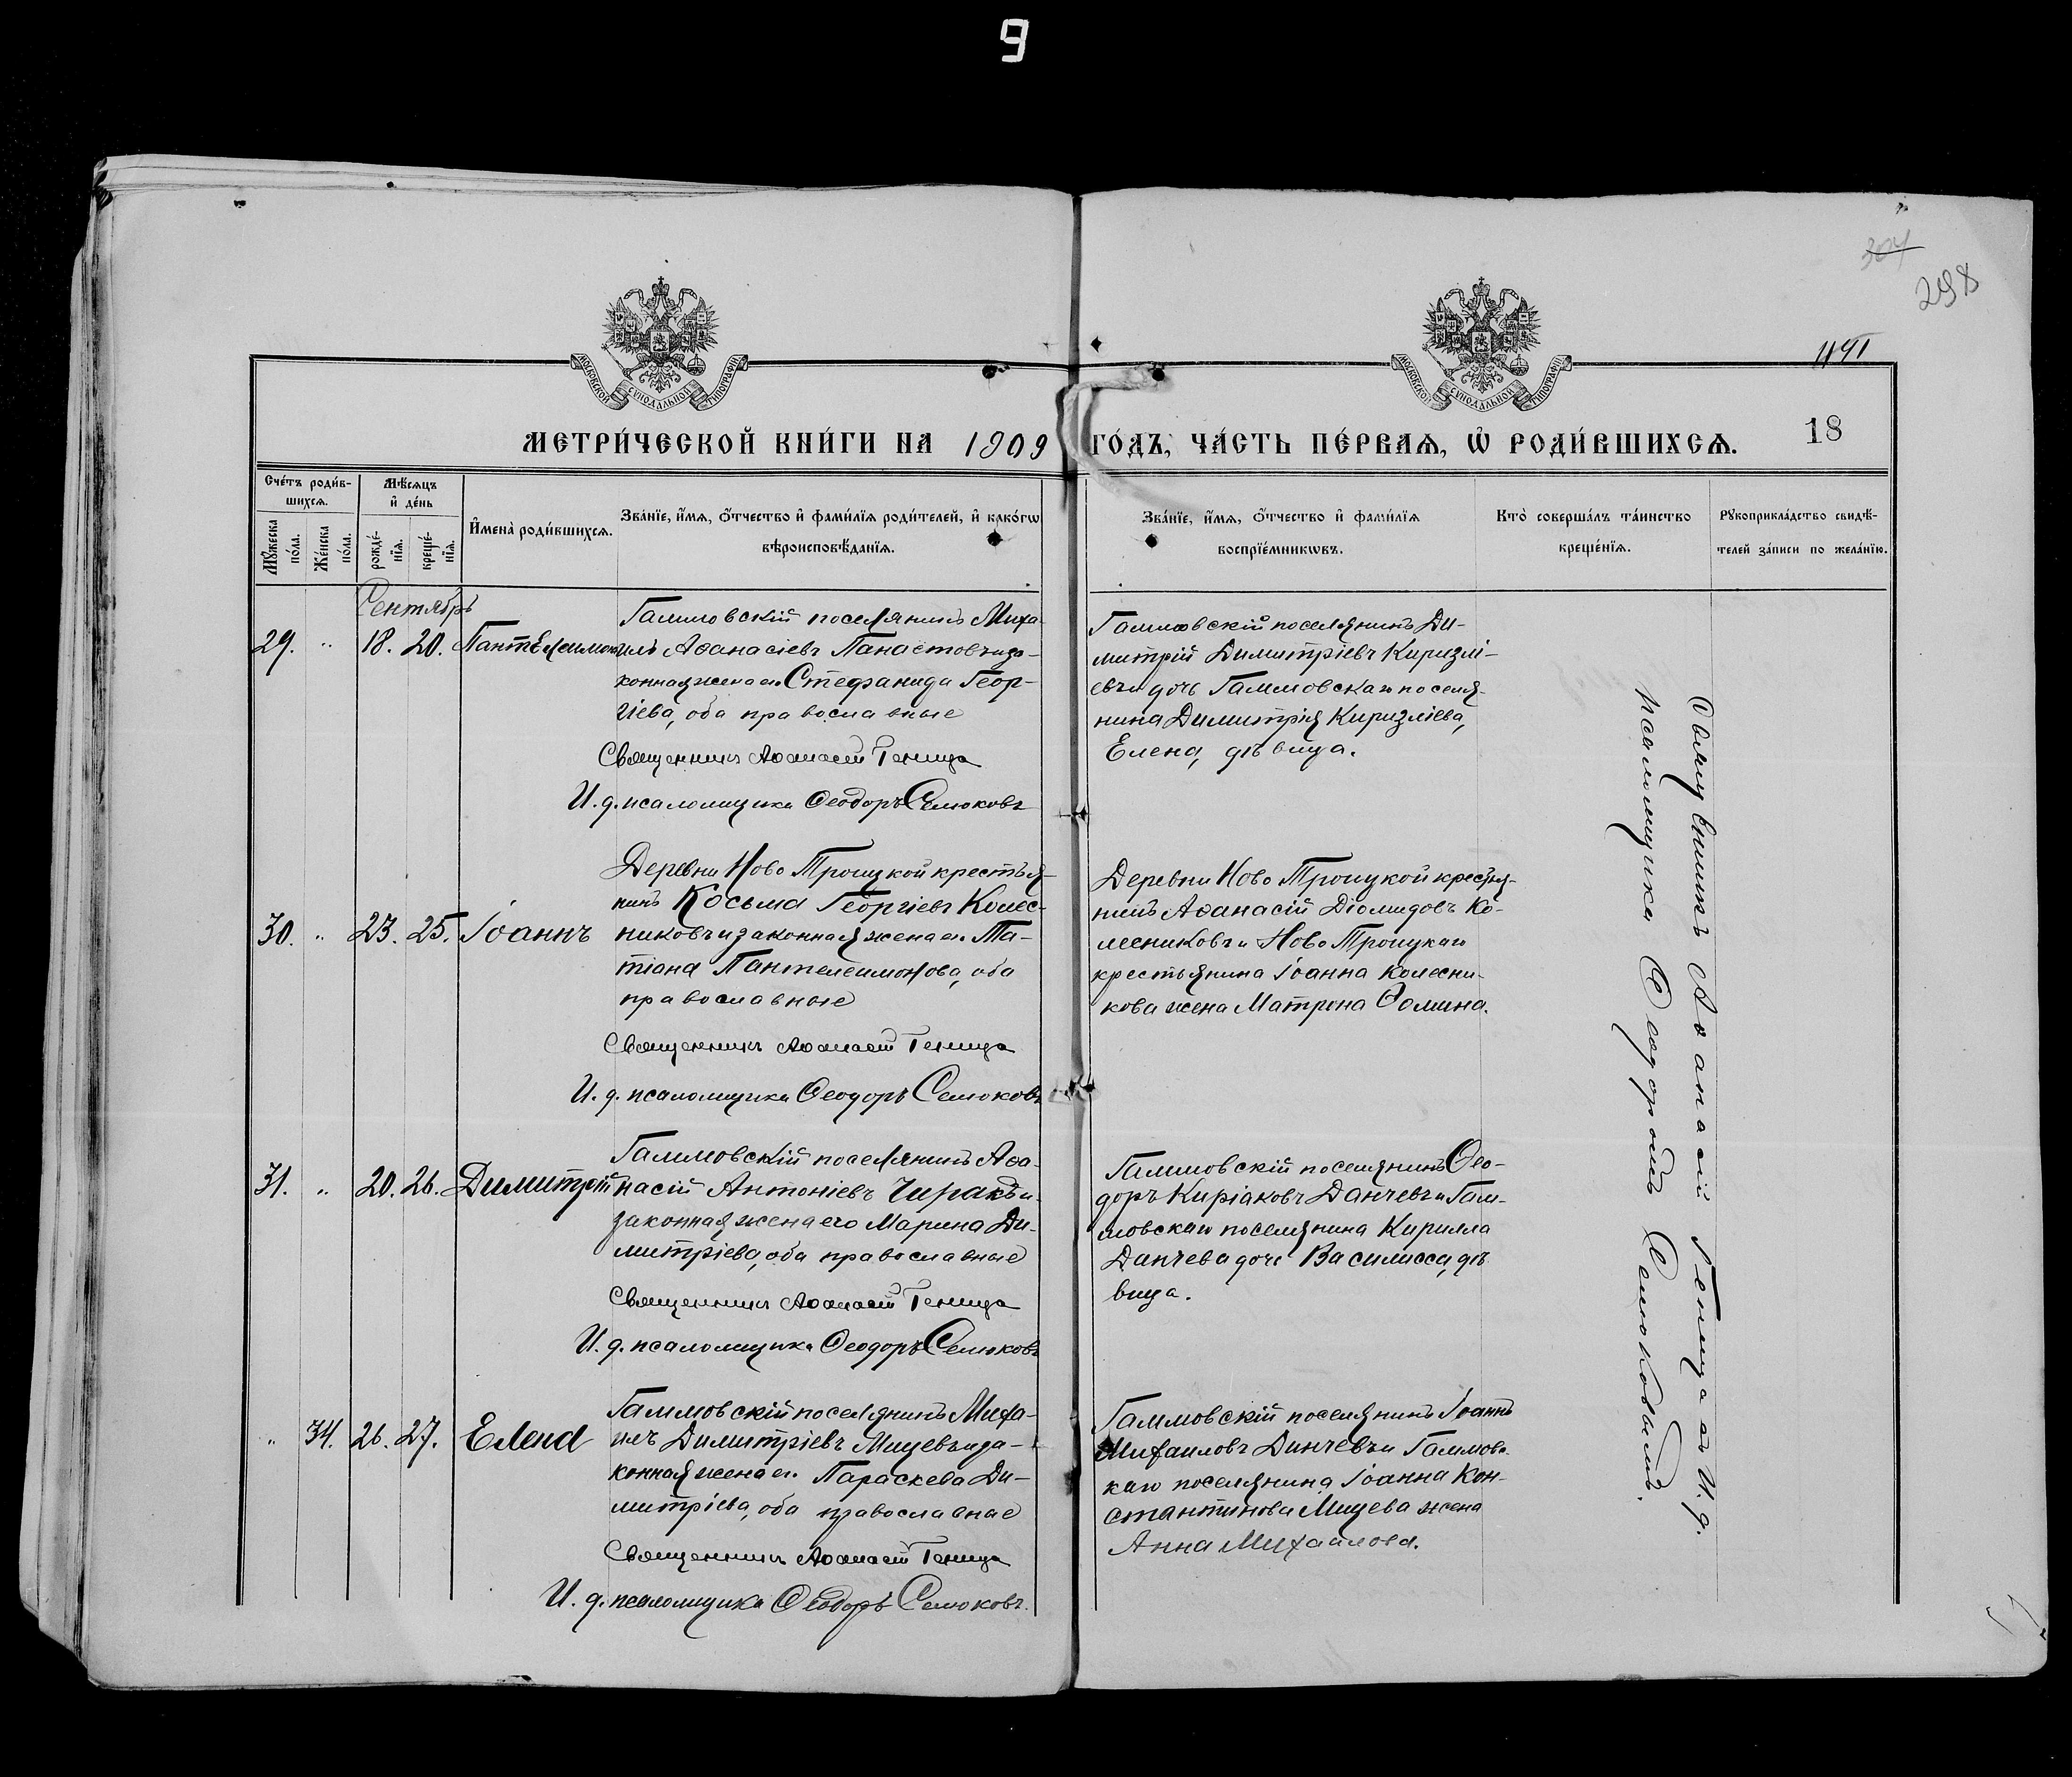 9
304
298
1191
МОСКОВСКОЙ СУНОДАЛЬНОЙ ТИПОГРАФІИ
МОСКОВСКОЙ СУНОДАЛЬНОЙ ТИПОГРАФІИ
МЕТРИ́ЧЕСКОЙ КНИ́ГИ НА 1909 ГО́ДЪ, ЧА́СТЬ ПЕ́РВАѦ, Ѡ҆ РОДИ́ВШИХСѦ.
18
Сче́тъ роди́в-
шихсѧ.
Мѣ́сѧцъ
и҆ де́нь
Мꙋ́жеска
по́ла.
Же́нска
по́ла.
рожде́-
нїѧ.
креще́-
нїѧ.
И҆мена̀ роди́вшихсѧ.
Зва́нїе, и҆́мѧ, ѻ҆́тчество и҆ фами́лїѧ роди́телей, и҆ како́гѡ
вѣроисповѣ́данїѧ.
Зва́нїе, и҆́мѧ, ѻ҆́тчество и҆ фами́лїѧ
воспрїе́мникѡвъ.
Кто̀ соверша́лъ та́инство
креще́нїѧ.
Рꙋкоприкла́дство свидѣ́-
телей за́писи по жела́нїю.
Сентябрь
29. " 18. 20. Пантелеимонъ
Гамловскій поселянинъ Миха-
илъ Аѳанасіевъ Панастовъ и за-
конная жена ег. Стефанида Геор-
гіева, оба православные
Священникъ Аѳанасій Геница
И. д. псаломщика Ѳеодоръ Семюковъ
Гамловскій поселянинъ Ди-
митрій Димитріевъ Киризлі-
евъ и дочь Гамловскаго поселя-
нина Димитрія Киризліева,
Елена, дѣвица.
30. " 23. 25. Іоаннъ
Деревни Ново Троицкой крестья-
нинъ Косьма Георгіевъ Колес-
никовъ и законная жена ег. Та-
тіана Пантелеимонова, оба
православные
Священникъ Аѳанасій Геница
И. д. псаломщика Ѳеодоръ Семюковъ
Деревни Ново Троицкой крестья-
нинъ Аѳанасій Діомидовъ Ко-
лесниковъ и Ново Троицкаго
крестьянина Іоанна Колесни-
кова жена Матрона Ѳомина.
31. " 20. 26. Димитрій
Гамловскій поселянинъ Аѳа-
насій Антоніевъ Чиракъ и
законная жена его Марина Ди-
митріева, оба православные
Священникъ Аѳанасій Геница
И. д. псаломщика Ѳеодоръ Семюковъ
Гамловскій поселянинъ Ѳео-
доръ Киріаковъ Данчевъ и Гам-
ловскаго поселянина Кирилла
Данчева дочь Василисса, дѣ-
вица.
" 34. 26. 27. Елена
Гамловскій поселянинъ Миха-
илъ Димитріевъ Мицевъ и за-
конная жена ег. Параскева Ди-
митріева, оба православные
Священникъ Аѳанасій Геница
И. д. псаломщика Ѳеодоръ Семюковъ.
Гамловскій поселянинъ Іоаннъ
Михаиловъ Динчевъ и Гамловс-
каго поселянина Іоанна Кон-
стантинова Мицева жена
Анна Михаилова.
Священникъ Аѳанасій Геница съ И. д.
псаломщика Ѳеодоромъ Семюковымъ.